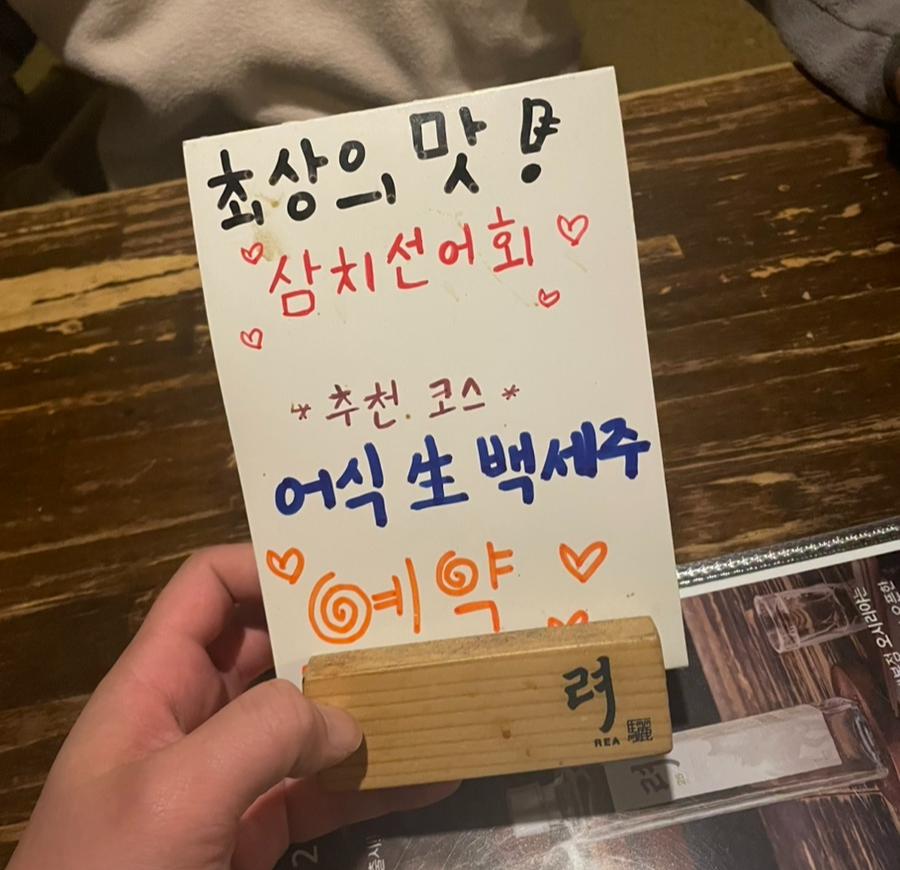 최상의 맛!
삼치선어회
* 추천 코스 *
어식 生 백세주
예약
려
REA